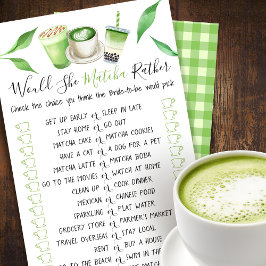 Would She Matcha Rather
Check the choice you think the Bride-to-be would pick
GET UP EARLY or SLEEP IN LATE
STAY HOME or GO OUT
MATCHA CAKE or MATCHA COOKIES
HAVE A CAT or A DOG FOR A PET
MATCHA LATTE or MATCHA BOBA
GO TO THE MOVIES or WATCH AT HOME
CLEAN UP or COOK DINNER
MEXICAN or CHINESE FOOD
SPARKLING or FLAT WATER
GROCERY STORE or FARMER'S MARKET
TRAVEL OVERSEAS or STAY LOCAL
RENT or BUY A HOUSE
GO TO THE BEACH or SWIM IN THE